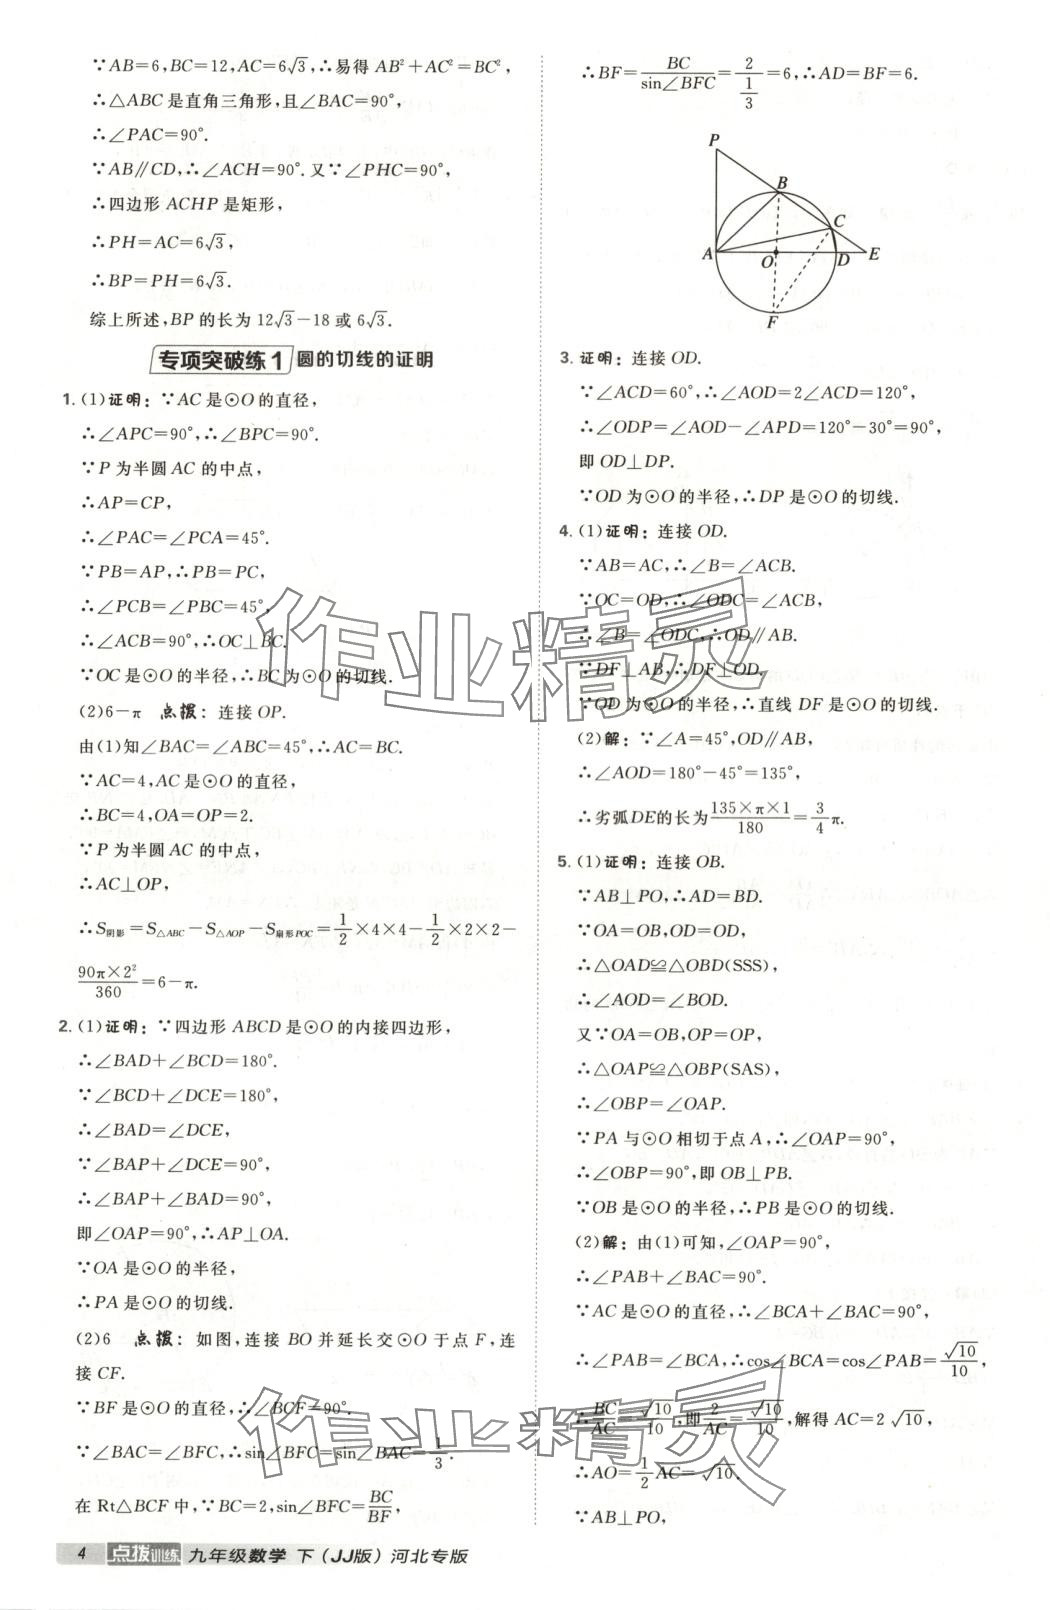 ∵AB=6,BC=12,AC=6√3,∴易得 AB²+AC²=BC²,
∴△ABC是直角三角形,且∠BAC=90°,
∴∠PAC=90°.
∵AB∥CD,∴∠ACH=90°.又∵∠PHC=90°,
∴四边形 ACHP 是矩形,
∴PH=AC=6√3,
∴BP=PH=6√3.
综上所述,BP 的长为 12√3-18 或 6√3.
专项突破练1 圆的切线的证明
1.(1)证明:∵AC是⊙O的直径,
∴∠APC=90°,∴∠BPC=90°.
∵P 为半圆 AC 的中点,
∴AP=CP,
∴∠PAC=∠PCA=45°.
∵PB=AP,∴PB=PC,
∴∠PCB=∠PBC=45°,
∴∠ACB=90°,∴OC⊥BC.
∵OC是⊙O的半径,∴BC为⊙O的切线.
(2)6-π 点拨:连接OP.
由(1)知∠BAC=∠ABC=45°,∴AC=BC.
∵AC=4,AC是⊙O的直径,
∴BC=4,OA=OP=2.
∵P 为半圆 AC 的中点,
∴AC⊥OP,
∴S阴影=S△ABC-S△AOP-S扇形POC=1/2×4×4-1/2×2×2-
90π×2²/360=6-π.
2.(1)证明:∵四边形 ABCD 是⊙O的内接四边形,
∴∠BAD+∠BCD=180°.
∵∠BCD+∠DCE=180°,
∴∠BAD=∠DCE,
∵∠BAP+∠DCE=90°,
∴∠BAP+∠BAD=90°,
即∠OAP=90°,∴AP⊥OA.
∵OA是⊙O的半径,
∴PA是⊙O的切线.
(2)6 点拨:如图,连接 BO 并延长交⊙O 于点 F,连
接CF.
∵BF是⊙O的直径,∴∠BCF=90°.
∵∠BAC=∠BFC,∴sin∠BFC=sin∠BAC=1/3.
在 Rt△BCF 中,∵BC=2,sin∠BFC=BC/BF,
4 点拨训练 九年级数学 下(JJ版)河北专版
∴BF=BC/sin∠BFC=2/(1/3)=6,∴AD=BF=6.
P
B
C
A
O
D
E
F
3.证明:连接OD.
∵∠ACD=60°,∴∠AOD=2∠ACD=120°,
∴∠ODP=∠AOD-∠APD=120°-30°=90°,
即 OD⊥DP.
∵OD为⊙O的半径,∴DP是⊙O的切线.
4.(1)证明:连接OD.
∵AB=AC,∴∠B=∠ACB.
∵OC=OD,∴∠ODC=∠ACB,
∴∠B=∠ODC,∴OD∥AB.
∵DF⊥AB,∴DF⊥OD,
∵OD为⊙O的半径,∴直线 DF是⊙O的切线.
(2)解:∵∠A=45°,OD∥AB,
∴∠AOD=180°-45°=135°,
∴劣弧DE的长为135×π×1/180=3/4π.
5.(1)证明:连接OB.
∵AB⊥PO,∴AD=BD.
∵OA=OB,OD=OD,
∴△OAD≌△OBD(SSS),
∴∠AOD=∠BOD.
又∵OA=OB,OP=OP,
∴△OAP≌△OBP(SAS),
∴∠OBP=∠OAP.
∵PA与⊙O相切于点A,∴∠OAP=90°,
∴∠OBP=90°,即 OB⊥PB.
∵OB是⊙O的半径,∴PB是⊙O的切线.
(2)解:由(1)可知,∠OAP=90°,
∴∠PAB+∠BAC=90°.
∵AC是⊙O的直径,∴∠BCA+∠BAC=90°,
∴∠PAB=∠BCA,∴cos∠BCA=cos∠PAB=√10/10,
∴BC/AC=√10/10,即2/AC=√10/10,解得 AC=2√10,
∴AO=1/2AC=√10.
∵AB⊥PO,
作业精灵
作业精灵